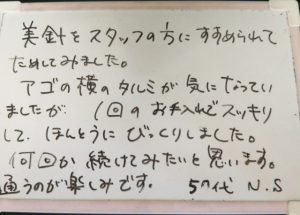 美針をスタッフの方にすすめられて
ためしてみました。
アゴの横のタルミが気になってい
ましたが、1回のお手入れでスッキリ
して、ほんとうにびっくりしました。
何回か続けてみたいと思います。
通うのが楽しみです。 50代 N.S